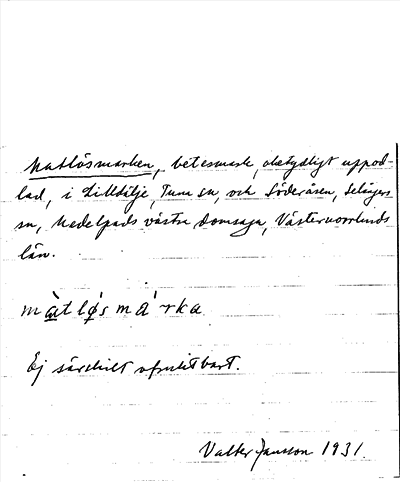 Matlösmarken, betesmark, obetydligt uppod-
lad, i Lilldälje, Tuna sn, och Söderåsen, Selångers
sn, Medelpads västra domsaga, Västernorrlands
län.
màtlø̀smárka
Ej särskilt
Valter Jansson 1931.